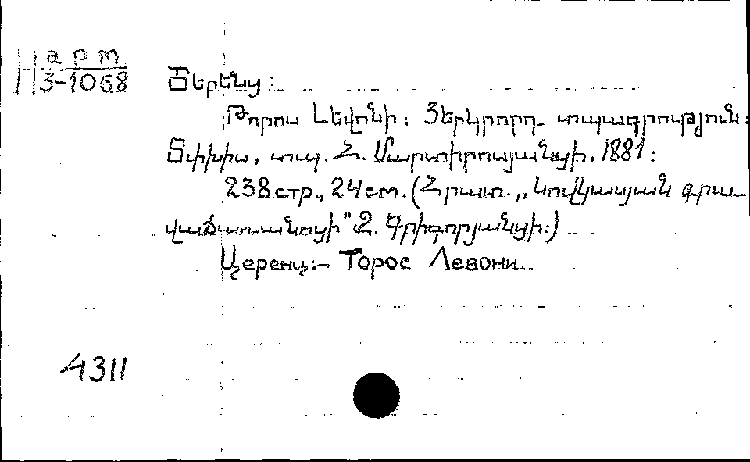 Н арт
3-1068
Ծերենց:
Թորոս Լեվոնի: Յերկրորդ տպագրություն:
Տփխիս, տպ. Հ. Մարտիրոսյանցի, 1881:
238 стр., 24 cm. (Հրատ. „Կովկասյան գրա-
վաճառանոցի" Զ. Գրիգորյանցի:)
Церенц:- Торос Левони.
4311